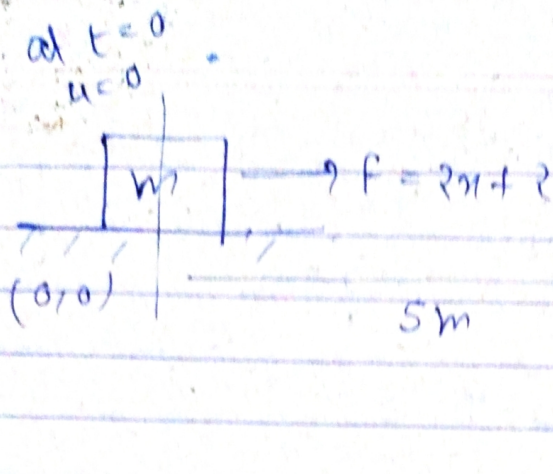 at t = 0
u = 0
m → F = 2x + 2
(0,0)
5m